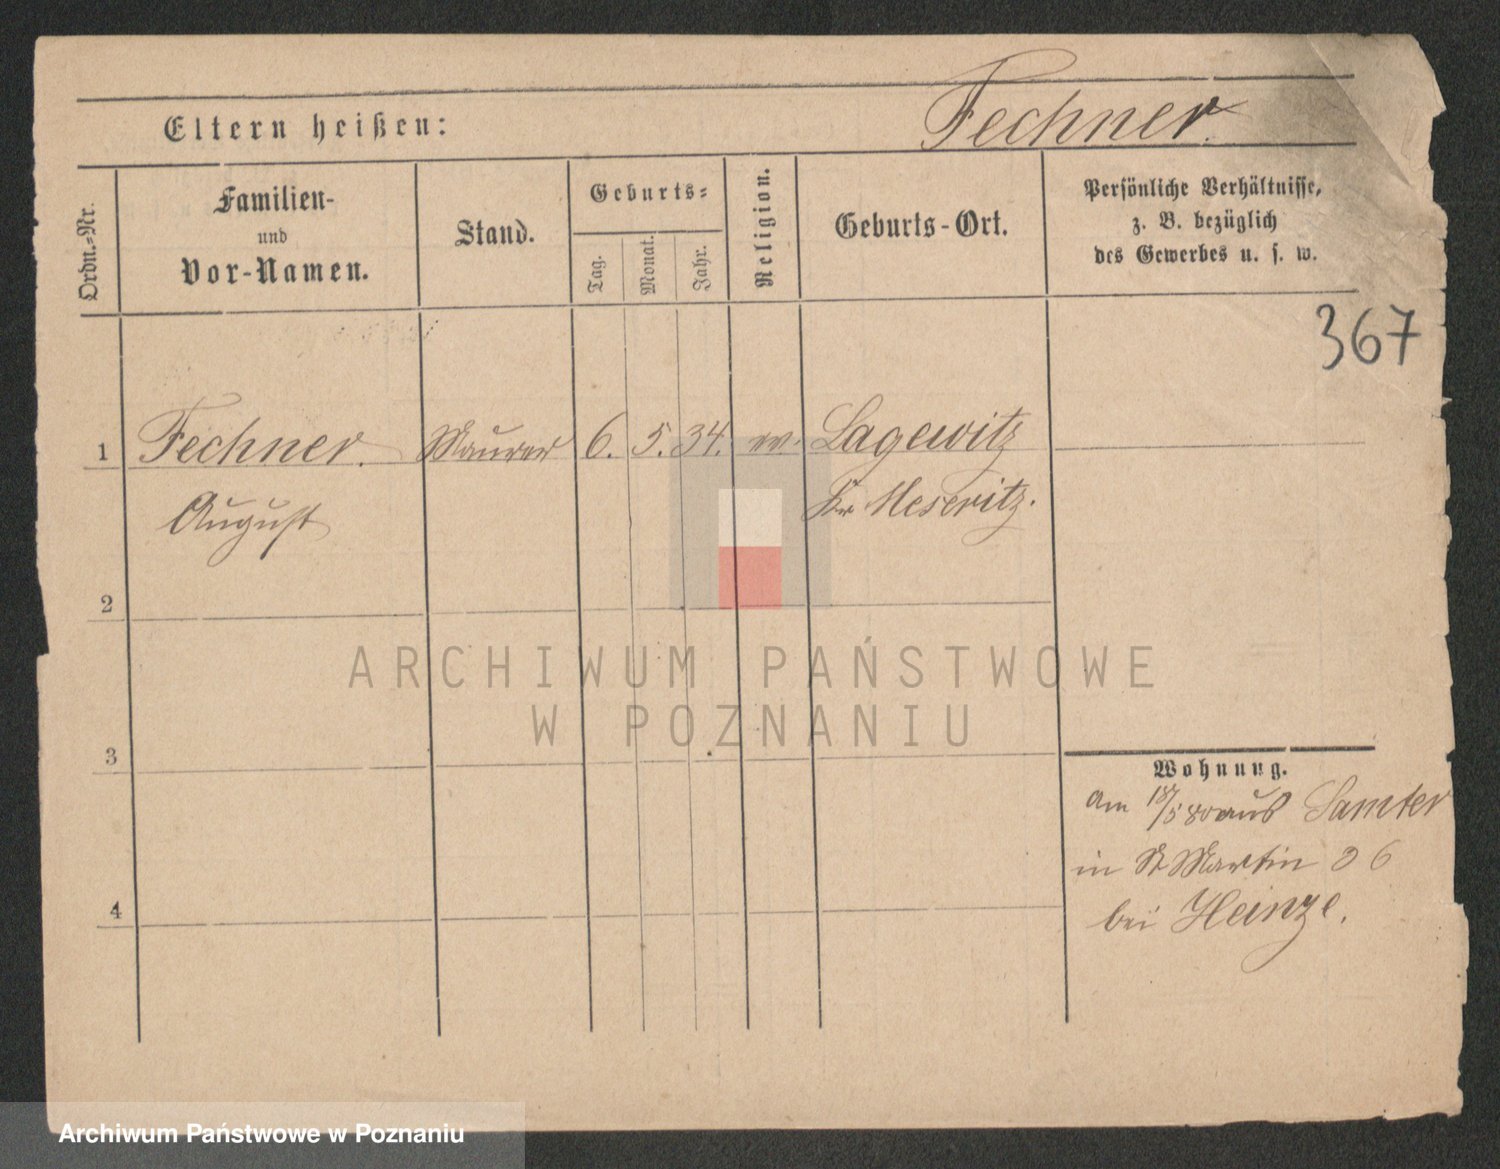 Fechner.
Eltern heißen:
Ordn.=Nr.
Familien-
und
Vor-Namen.
Stand.
Geburts=
Tag.
Monat.
Jahr.
Religion.
Geburts-Ort.
Persönliche Verhältnisse,
z. B. bezüglich
des Gewerbes u. s. w.
367
1 Fechner. Maurer 6. 5. 34. ev. Lagewitz
August Kr Meseritz.
2
3
4
ARCHIWUM PAŃSTWOWE
W POZNANIU
Wohnung.
am 18/5 80 aus Samter
in St Martin 36
bei Heinze.
Archiwum Państwowe w Poznaniu